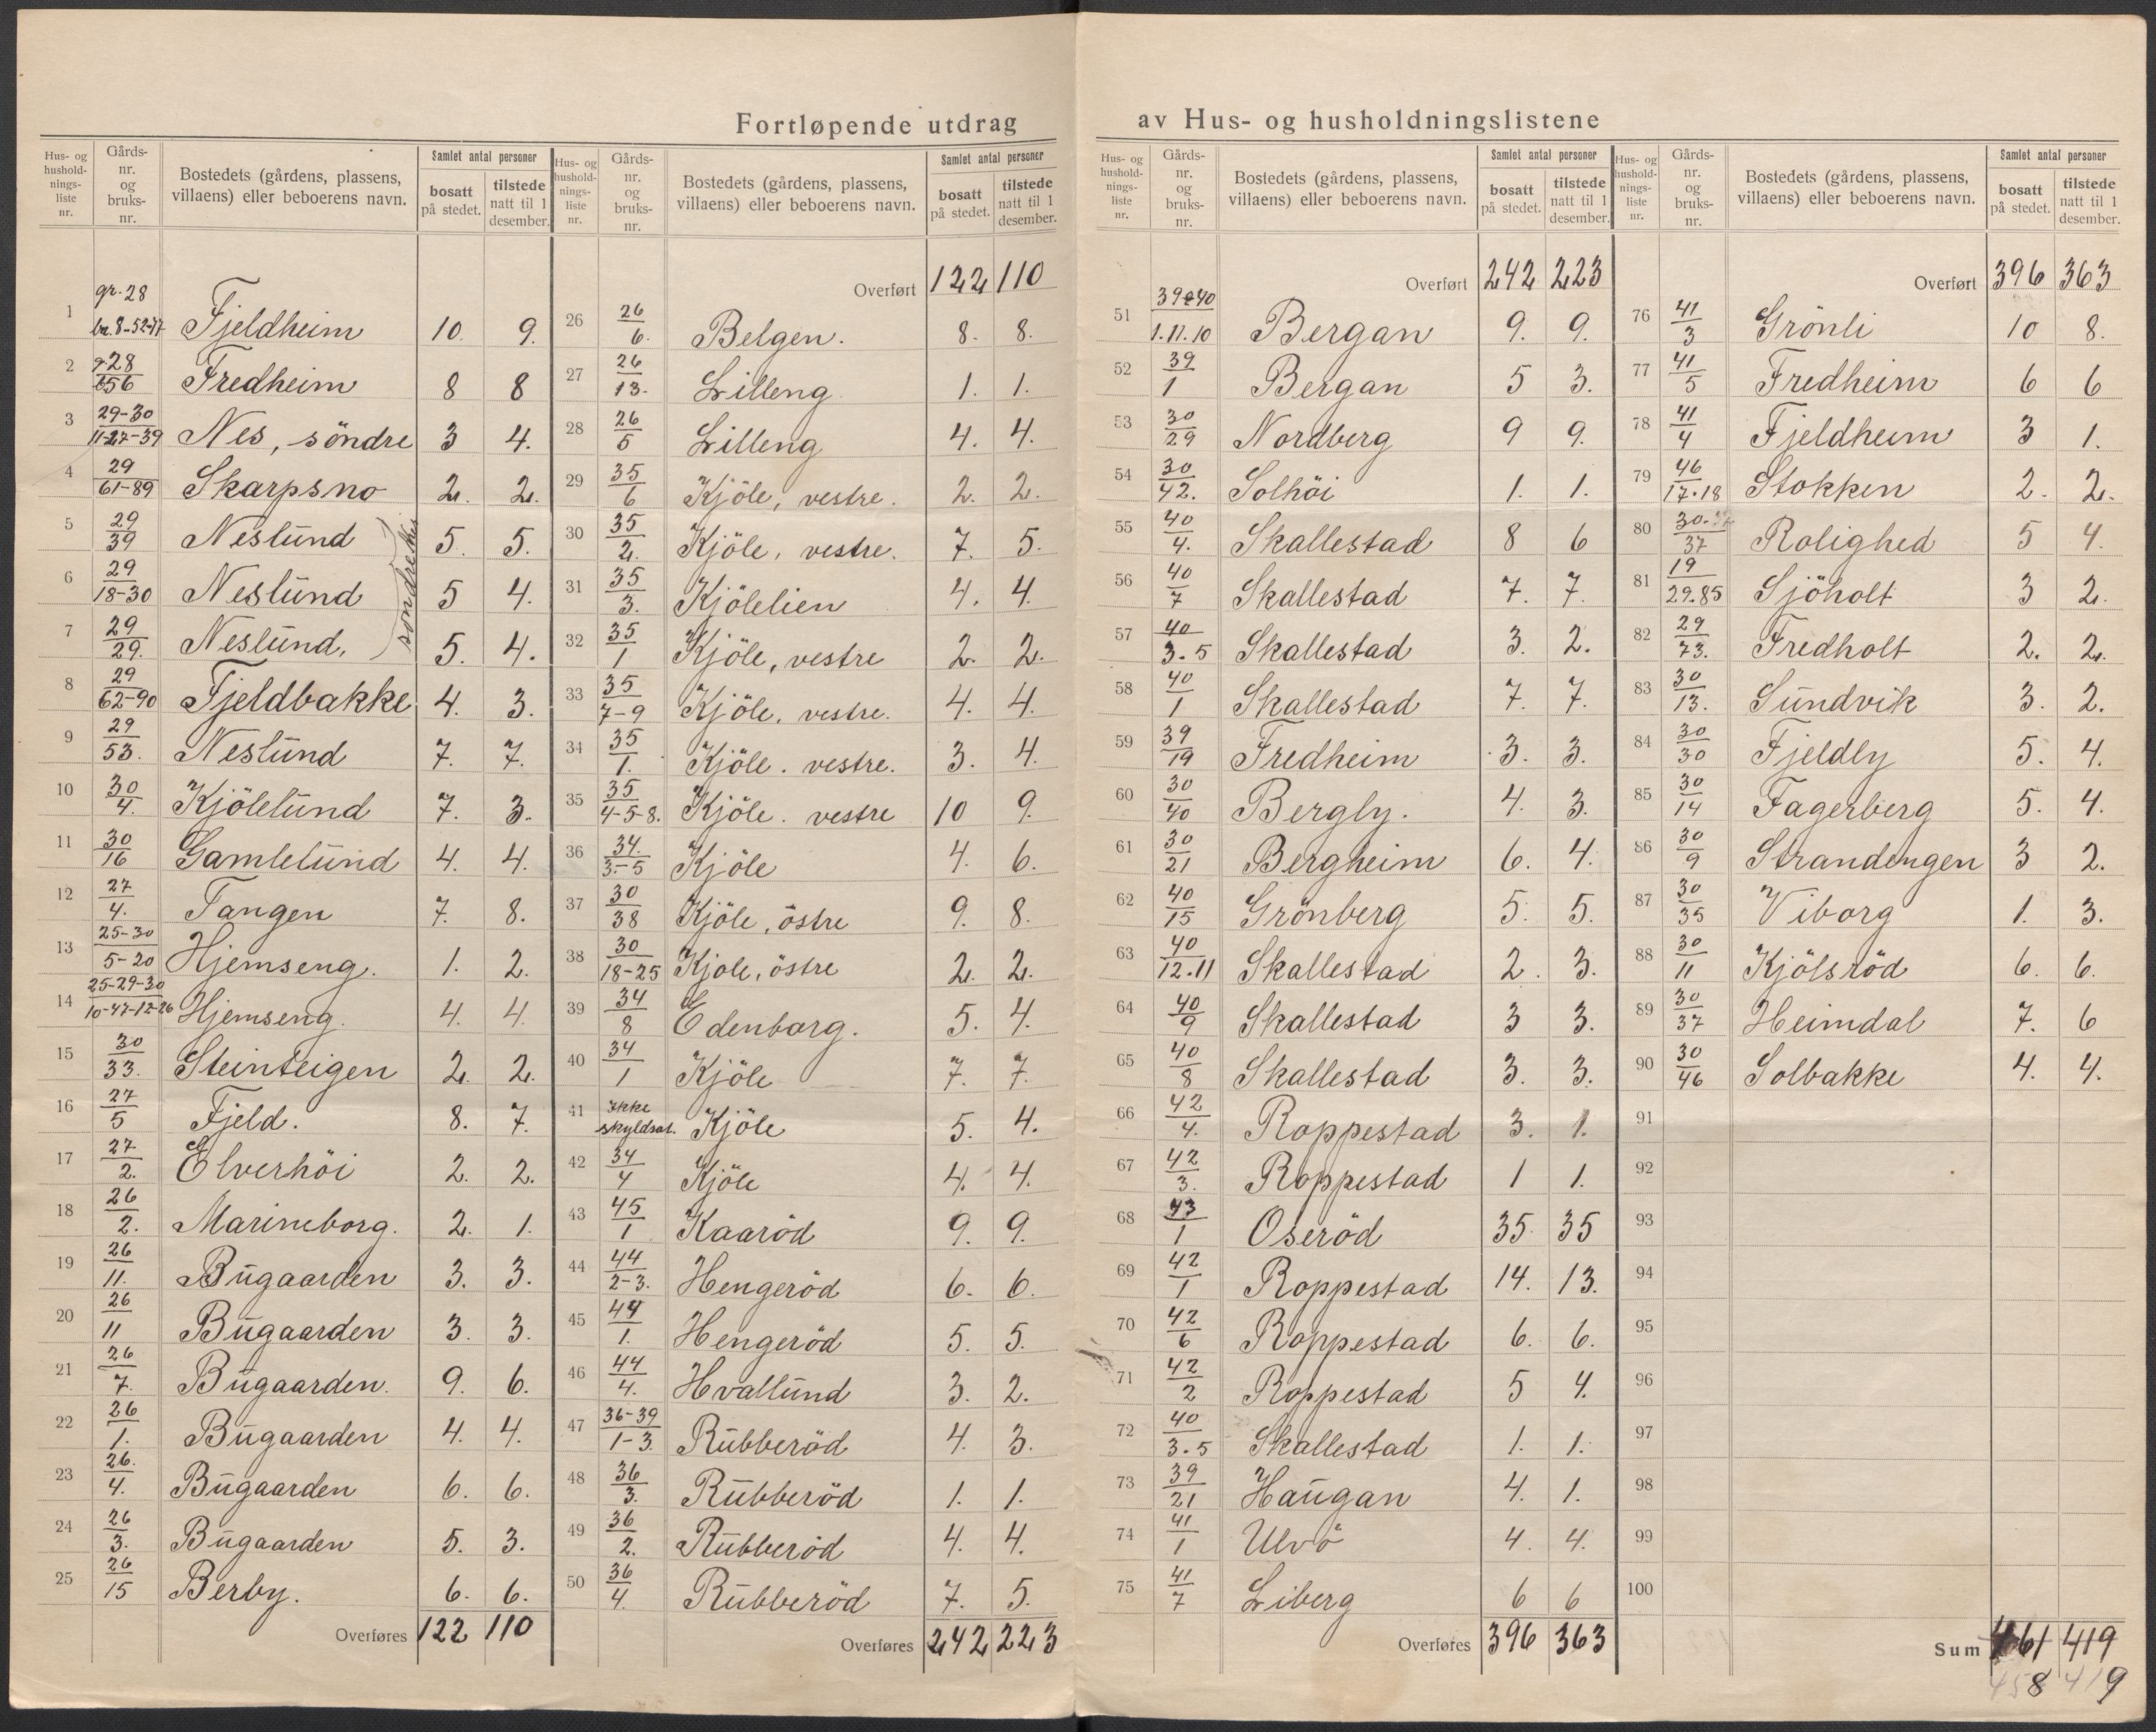 Fortløpende utdrag av Hus- og husholdningslistene
Hus- og husholdnings-liste nr. | Gårds-nr. og bruks-nr. | Bostedets (gårdens, plassens, villaens) eller beboerens navn. | Samlet antal personer bosatt på stedet. | tilstede natt til 1 desember.
1 | gr. 28 br. 8-52-77 | Fjeldheim | 10. | 9.
2 | g. 28 / b 56 | Fredheim | 8 | 8
3 | 29-30 / 11-27-39 | Nes, söndre | 3 | 4.
4 | 29 / 61-89 | Skarpsno | 2. | 2.
5 | 29 / 39 | Neslund | 5. | 5.
6 | 29 / 18-30 | Neslund | 5 | 4.
7 | 29 / 29. | Neslund, | 5. | 4.
söndre Nes
8 | 29 / 62-90 | Fjeldbakke | 4. | 3.
9 | 29 / 53. | Neslund | 7. | 7.
10 | 30 / 4. | Kjölelund | 7. | 3.
11 | 30 / 16 | Gamlelund | 4. | 4.
12 | 27 / 4. | Tangen | 7. | 8.
13 | 25-30 / 5-20 | Hjemseng. | 1. | 2.
14 | 25-29-30 / 10-47-12-26 | Hjemseng. | 4. | 4.
15 | 30 / 33. | Steinteigen | 2. | 2.
16 | 27 / 5 | Fjeld. | 8. | 7.
17 | 27 / 2. | Elverhöi | 2. | 2.
18 | 26 / 2. | Marineborg. | 2. | 1.
19 | 26 / 11. | Bugaarden | 3. | 3.
20 | 26 / 11 | Bugaarden | 3. | 3.
21 | 26 / 7. | Bugaarden. | 9. | 6.
22 | 26 / 1. | Bugaarden | 4. | 4.
23 | 26. / 4. | Bugaarden | 6. | 6.
24 | 26 / 3. | Bugaarden | 5. | 3.
25 | 26 / 15 | Berby. | 6. | 6.
Overføres | 122 | 110
Hus- og husholdnings-liste nr. | Gårds-nr. og bruks-nr. | Bostedets (gårdens, plassens, villaens) eller beboerens navn. | Samlet antal personer bosatt på stedet. | tilstede natt til 1 desember.
Overført | 122 | 110
26 | 26 / 6. | Belgen. | 8. | 8.
27 | 26 / 13. | Lilleng | 1. | 1.
28 | 26 / 5 | Lilleng | 4. | 4.
29 | 35 / 6 | Kjöle, vestre. | 2. | 2.
30 | 35 / 2. | Kjöle, vestre. | 7. | 5.
31 | 35 / 3. | Kjölelien | 4. | 4.
32 | 35 / 1 | Kjöle, vestre | 2. | 2.
33 | 35 / 7-9 | Kjöle, vestre. | 4. | 4.
34 | 35 / 1. | Kjöle. vestre. | 3. | 4.
35 | 35 / 4-5-8. | Kjöle. vestre | 10 | 9.
36 | 34. / 3.-5 | Kjöle | 4. | 6.
37 | 30 / 38 | Kjöle, östre | 9. | 8.
38 | 30 / 18-25 | Kjöle, östre | 2. | 2.
39 | 34 / 8 | Edenborg. | 5. | 4.
40 | 34 / 1 | Kjöle | 7. | 7.
41 | ikke skyldsat. | Kjöle | 5. | 4.
42 | 34 / 4 | Kjöle | 4. | 4.
43 | 45 / 1 | Kaaröd | 9. | 9.
44 | 44 / 2-3. | Hengeröd | 6. | 6.
45 | 44 / 1. | Hengeröd | 5. | 5.
46 | 44 / 4. | Hvallund | 3. | 2.
47 | 36-39 / 1-3. | Rubberöd | 4. | 3.
48 | 36 / 3. | Rubberöd | 1. | 1.
49 | 36 / 2. | Rubberöd | 4. | 4.
50 | 36 / 4. | Rubberöd | 7. | 5.
Overføres | 242 | 223
Hus- og husholdnings-liste nr. | Gårds-nr. og bruks-nr. | Bostedets (gårdens, plassens, villaens) eller beboerens navn. | Samlet antal personer bosatt på stedet. | tilstede natt til 1 desember.
Overført | 242 | 223
51 | 39 & 40 / 1.11.10 | Bergan | 9. | 9.
52 | 39 / 1 | Bergan | 5 | 3.
53 | 30 / 29 | Nordberg | 9 | 9.
54 | 30 / 42. | Solhöi | 1. | 1.
55 | 40 / 4. | Skallestad | 8 | 6
56 | 40 / 7 | Skallestad | 7. | 7.
57 | 40 / 3.5 | Skallestad | 3. | 2.
58 | 40 / 1 | Skallestad | 7. | 7.
59 | 39 / 19 | Fredheim | 3. | 3.
60 | 30 / 40 | Bergly. | 4. | 3.
61 | 30 / 21 | Bergheim | 6. | 4.
62 | 40 / 15 | Grönberg | 5. | 5.
63 | 40 / 12.11 | Skallestad | 2. | 3.
64 | 40 / 9 | Skallestad | 3 | 3.
65 | 40 / 8 | Skallestad | 3. | 3.
66 | 42 / 4. | Roppestad | 3. | 1.
67 | 42 / 3. | Roppestad | 1 | 1.
68 | 43 / 1 | Oseröd | 35. | 35
69 | 42 / 1 | Roppestad | 14. | 13.
70 | 42 / 6 | Roppestad | 6. | 6.
71 | 42 / 2 | Roppestad | 5 | 4.
72 | 40 / 3.5 | Skallestad | 1. | 1.
73 | 39 / 21 | Haugan | 4. | 1.
74 | 41 / 1 | Ulvö | 4. | 4.
75 | 41 / 7 | Liberg | 6 | 6
Overføres | 396 | 363
Hus- og husholdnings-liste nr. | Gårds-nr. og bruks-nr. | Bostedets (gårdens, plassens, villaens) eller beboerens navn. | Samlet antal personer bosatt på stedet. | tilstede natt til 1 desember.
Overført | 396 | 363
76 | 41 / 3 | Grönli | 10 | 8.
77 | 41 / 5 | Fredheim | 6 | 6
78 | 41 / 4 | Fjeldheim | 3 | 1.
79 | 46 / 17.18 | Stokken | 2. | 2.
80 | 30. / 37 | Rolighed | 5 | 4.
81 | 19 / 29.85 | Sjöholt | 3 | 2.
82 | 29 / 73. | Fredholt | 2. | 2.
83 | 30 / 13. | Sundvik | 3. | 2.
84 | 30 / 30 | Fjeldly | 5. | 4.
85 | 30 / 14 | Fagerberg | 5. | 4.
86 | 30 / 9 | Strandengen | 3 | 2.
87 | 30 / 35 | Viborg | 1. | 3.
88 | 30 / 11 | Kjölsröd | 6. | 6.
89 | 30 / 37 | Heimdal | 7. | 6
90 | 30 / 46 | Solbakke | 4. | 4.
91
92
93
94
95
96
97
98
99
100
Sum | 461 | 419
458 | 419